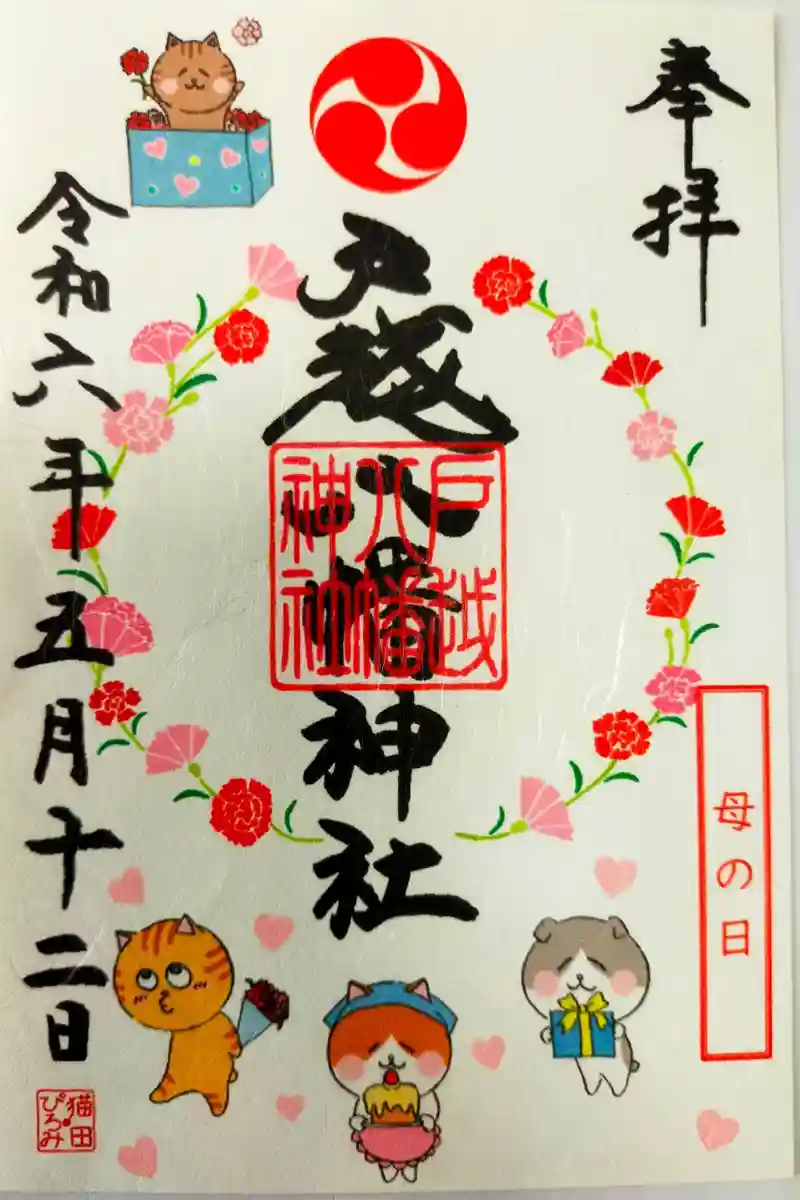 奉拝
戸越八幡神社
戸越
八幡
神社
母の日
令和六年五月十二日
猫田
びろみ